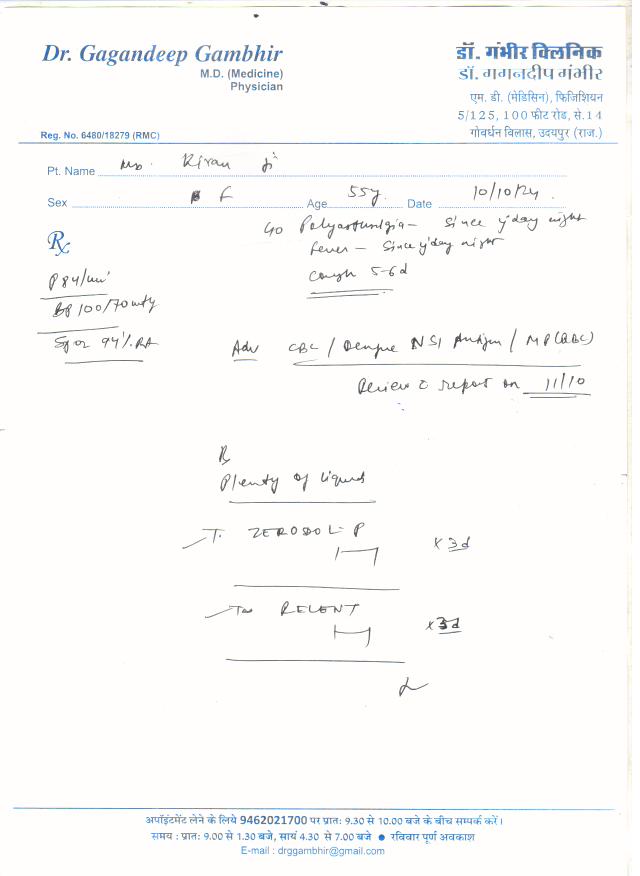 Dr. Gagandeep Gambhir
M.D. (Medicine)
Physician
Reg. No. 6480/18279 (RMC)
डॉ. गंभीर क्लिनिक
डॉ. गगनदीप गंभीर
एम. डी. (मेडिसिन), फिजिशियन
5/125, 100 फीट रोड, से.14
गोवर्धन विलास, उदयपुर (राज.)
Pt. Name Kiran ji
Sex F Age 55y Date 10/10/24
Rx
since y'day night
fever - since y'day night
Cough 5-6d
P 84/min
BP 100/70
94% RA
Adv CBC / Dengue NS1 Antigen / MP (QBC)
Review c report on 11/10
Rx
Plenty of liquid
T. ZERODOL-P
x 3d
RELENT
x 3d
अपॉइंटमेंट लेने के लिये 9462021700 पर प्रातः 9.30 से 10.00 बजे के बीच सम्पर्क करें।
समय : प्रातः 9.00 से 1.30 बजे, सायं 4.30 से 7.00 बजे ● रविवार पूर्ण अवकाश
E-mail : drggambhir@gmail.com